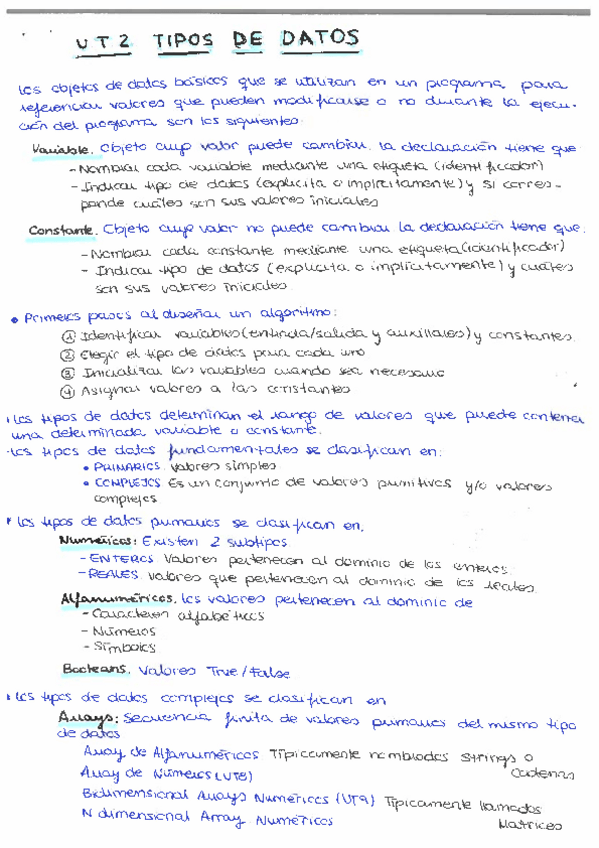 UT2 TIPOS DE DATOS
Los objetos de datos básicos que se utilizan en un programa para
referenciar valores que pueden modificarse o no durante la ejecu-
ción del programa son los siguientes:
Variable. Objeto cuyo valor puede cambiar. la declaración tiene que
- Nombrar cada variable mediante una etiqueta (identificador)
- Indicar tipo de datos (explicita o implícitamente) y si corres-
ponde cuáles son sus valores iniciales
Constante. Objeto cuyo valor no puede cambiar la declaración tiene que:
- Nombrar cada constante mediante una etiqueta (identificador)
- Indicar tipo de datos (explicita o implícitamente) y cuáles
son sus valores iniciales.
• Primeros pasos al diseñar un algoritmo:
① Identificar variables (entrada/salida y auxiliares) y constantes.
② Elegir el tipo de datos para cada uno
③ Inicializar las variables cuando sea necesario
④ Asignar valores a las constantes
• Los tipos de datos determinan el rango de valores que puede contener
una determinada variable o constante.
• Los tipos de datos fundamentales se clasifican en:
• PRIMARIOS. Valores simples
• COMPLEJOS Es un conjunto de valores primitivos y/o valores
complejos
• Los tipos de datos primarios se clasifican en,
Numericos: Existen 2 subtipos
- ENTEROS Valores pertenecen al dominio de los enteros.
- REALES. Valores que pertenecen al dominio de los reales.
Alfanuméricos. Los valores pertenecen al dominio de
- Caracteres alfabéticos
- Números
- Símbolos
Booleans. Valores True/False
• Los tipos de datos complejos se clasifican en
Arrays: Secuencia finita de valores primarios del mismo tipo
de datos
Array de Alfanuméricos Típicamente nombrados Strings o
Cadenas
Array de Números (UT8)
Bidimensional Arrays Numéricos (UT9) Típicamente llamados
Matrices
N dimensional Array Numéricos